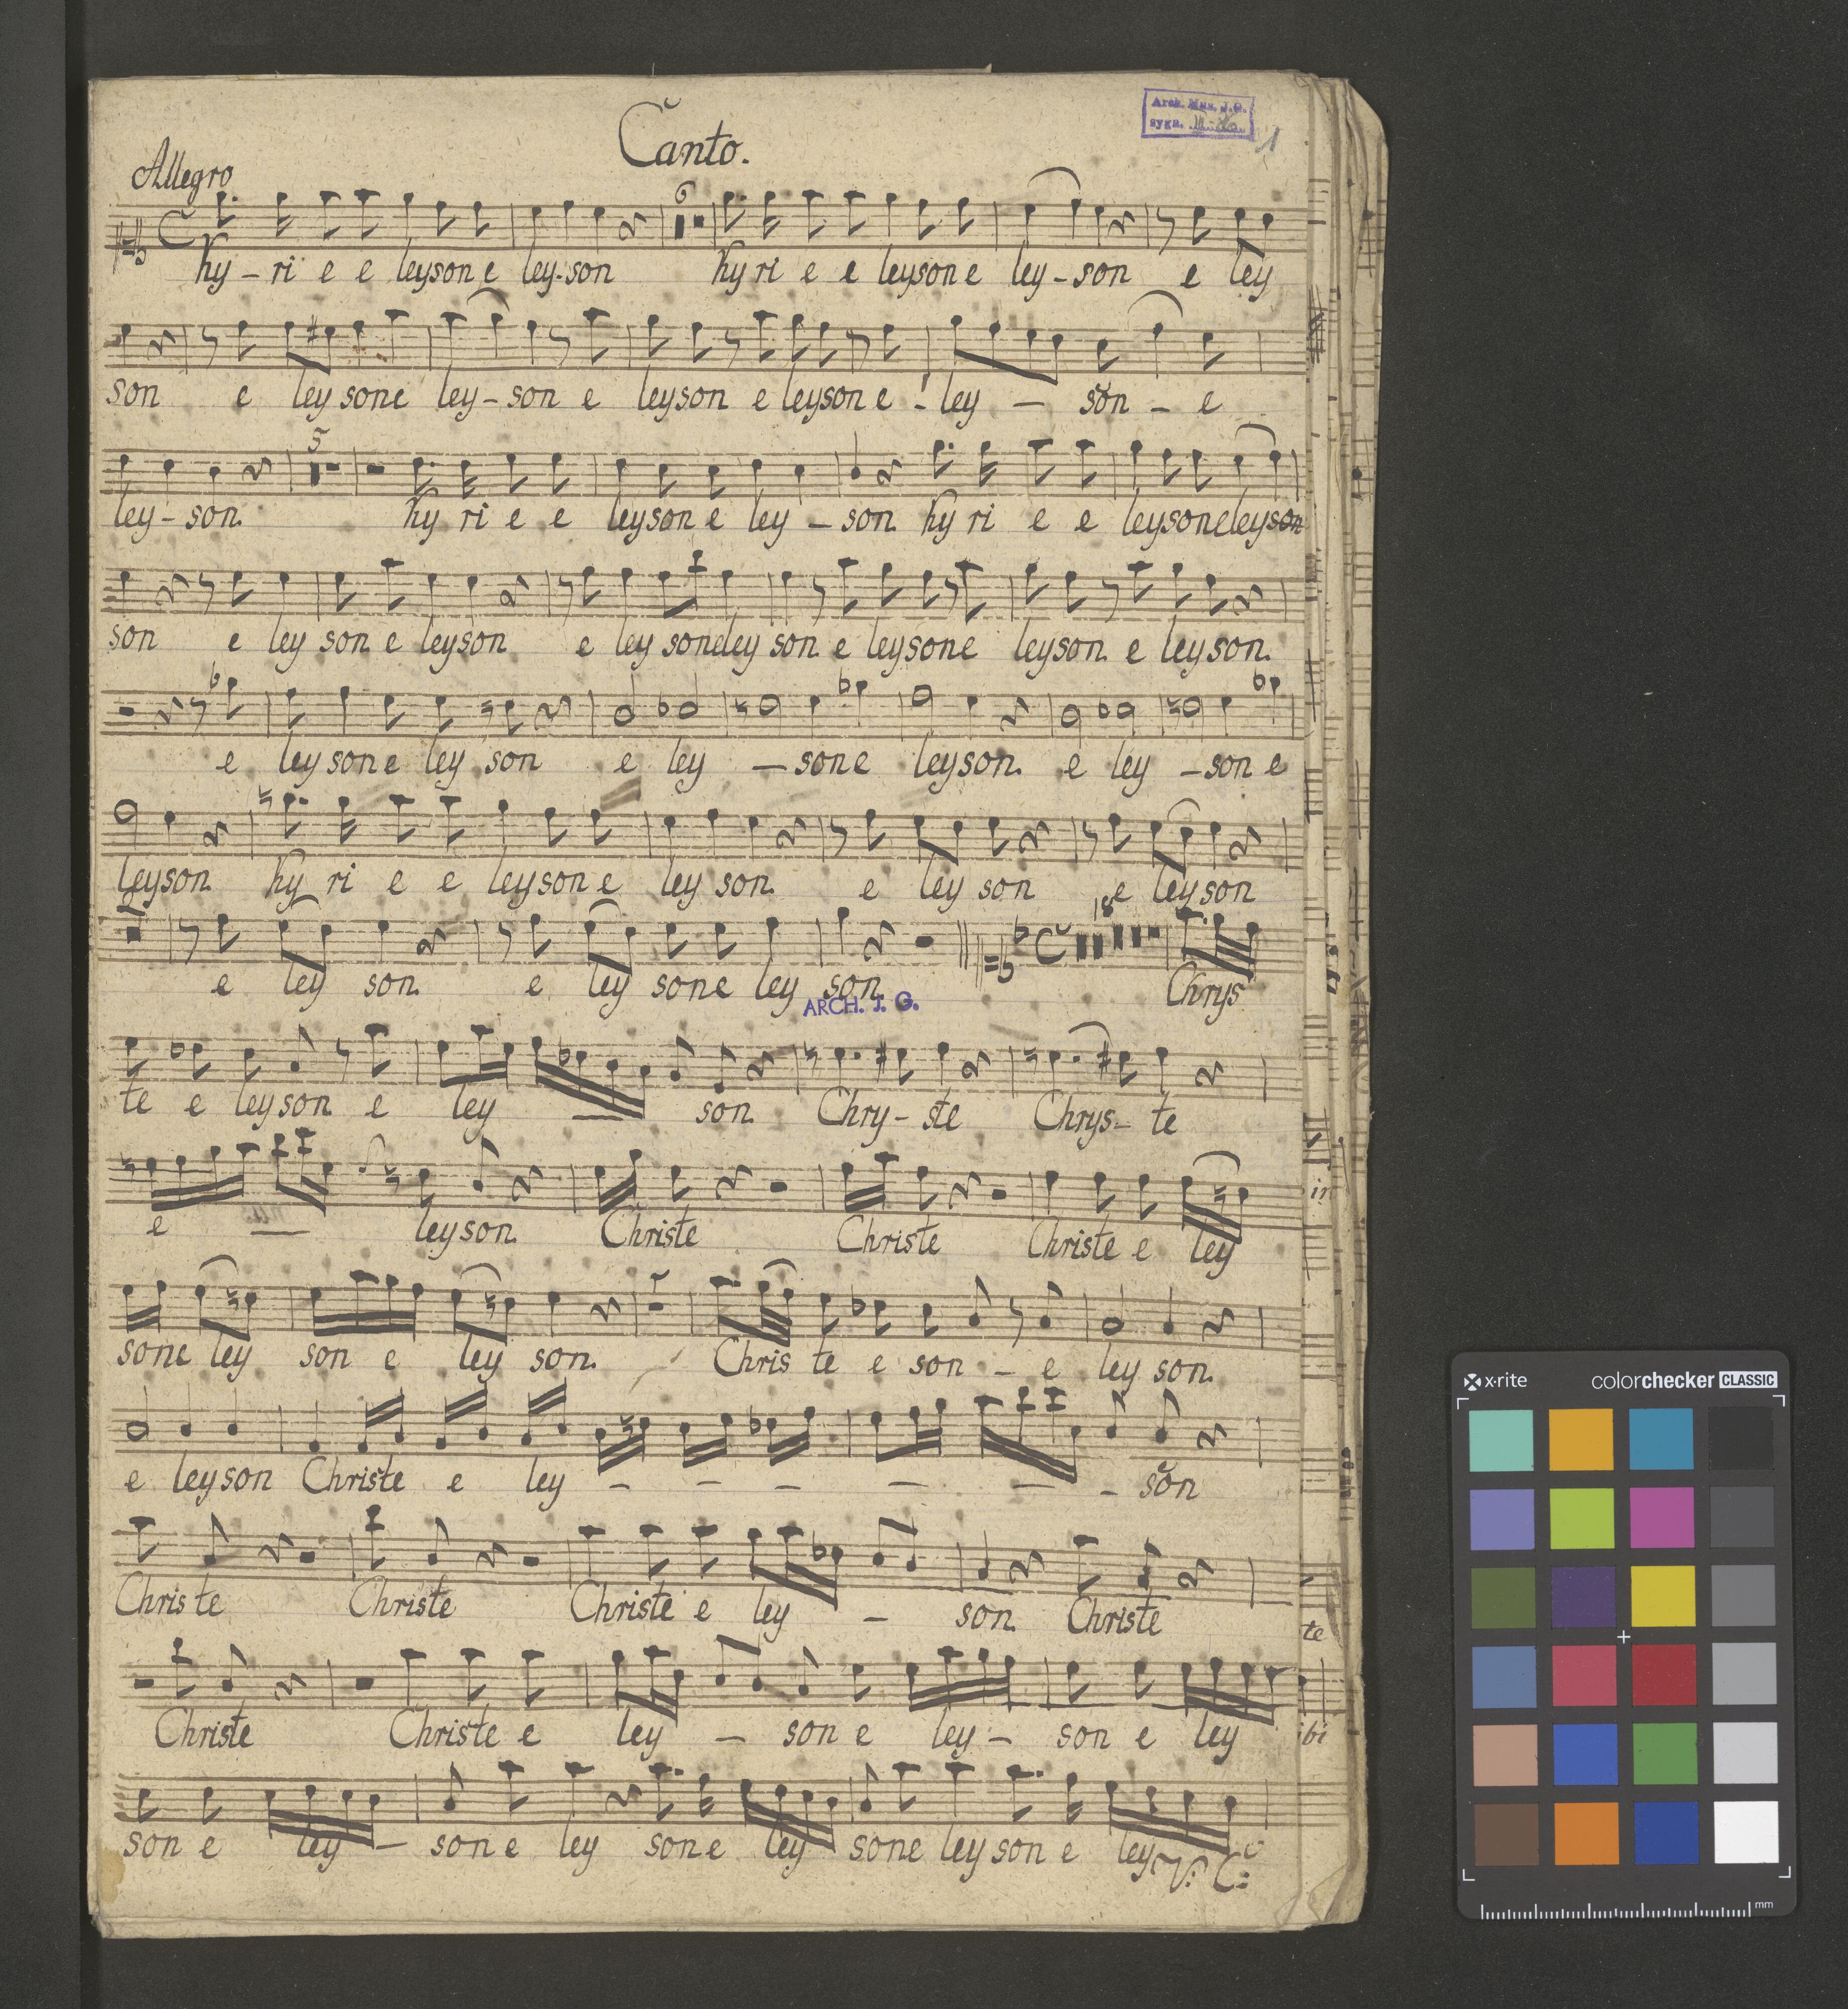 Canto.
Arch. Mus. J.G.
sygn.
1
Allegro
6
ky - ri e e leyson e ley - son ky ri e e leyson e ley - son e ley
son e ley sone ley - son e leyson e leyson e ley — son - e
5
ley - son. ky ri e e leyson e ley - son. ky ri e e leysoneleyson
son e ley son e leyson e ley soneley son e leysone leyson e leyson.
e leysone ley son e ley — sone leyson. e ley - son e
leyson ky ri e e leyson e ley son. e ley son e leyson
18
e ley son. e ley sone ley son. Chrys
ARCH. J. G.
te e leyson e ley — son. Chry - ste Chrys - te
e — leyson. Christe Christe Christe e ley
in
sone ley son e ley son. Chris te e son - e ley son.
e leyson Christe e ley - - - - - - son
Christe Christe Christe e ley - son. Christe
te
Christe Christe e ley — son e ley - son e ley
ibi
son e ley — sone ley sone ley sone leyson e ley
x·rite colorchecker CLASSIC
mm